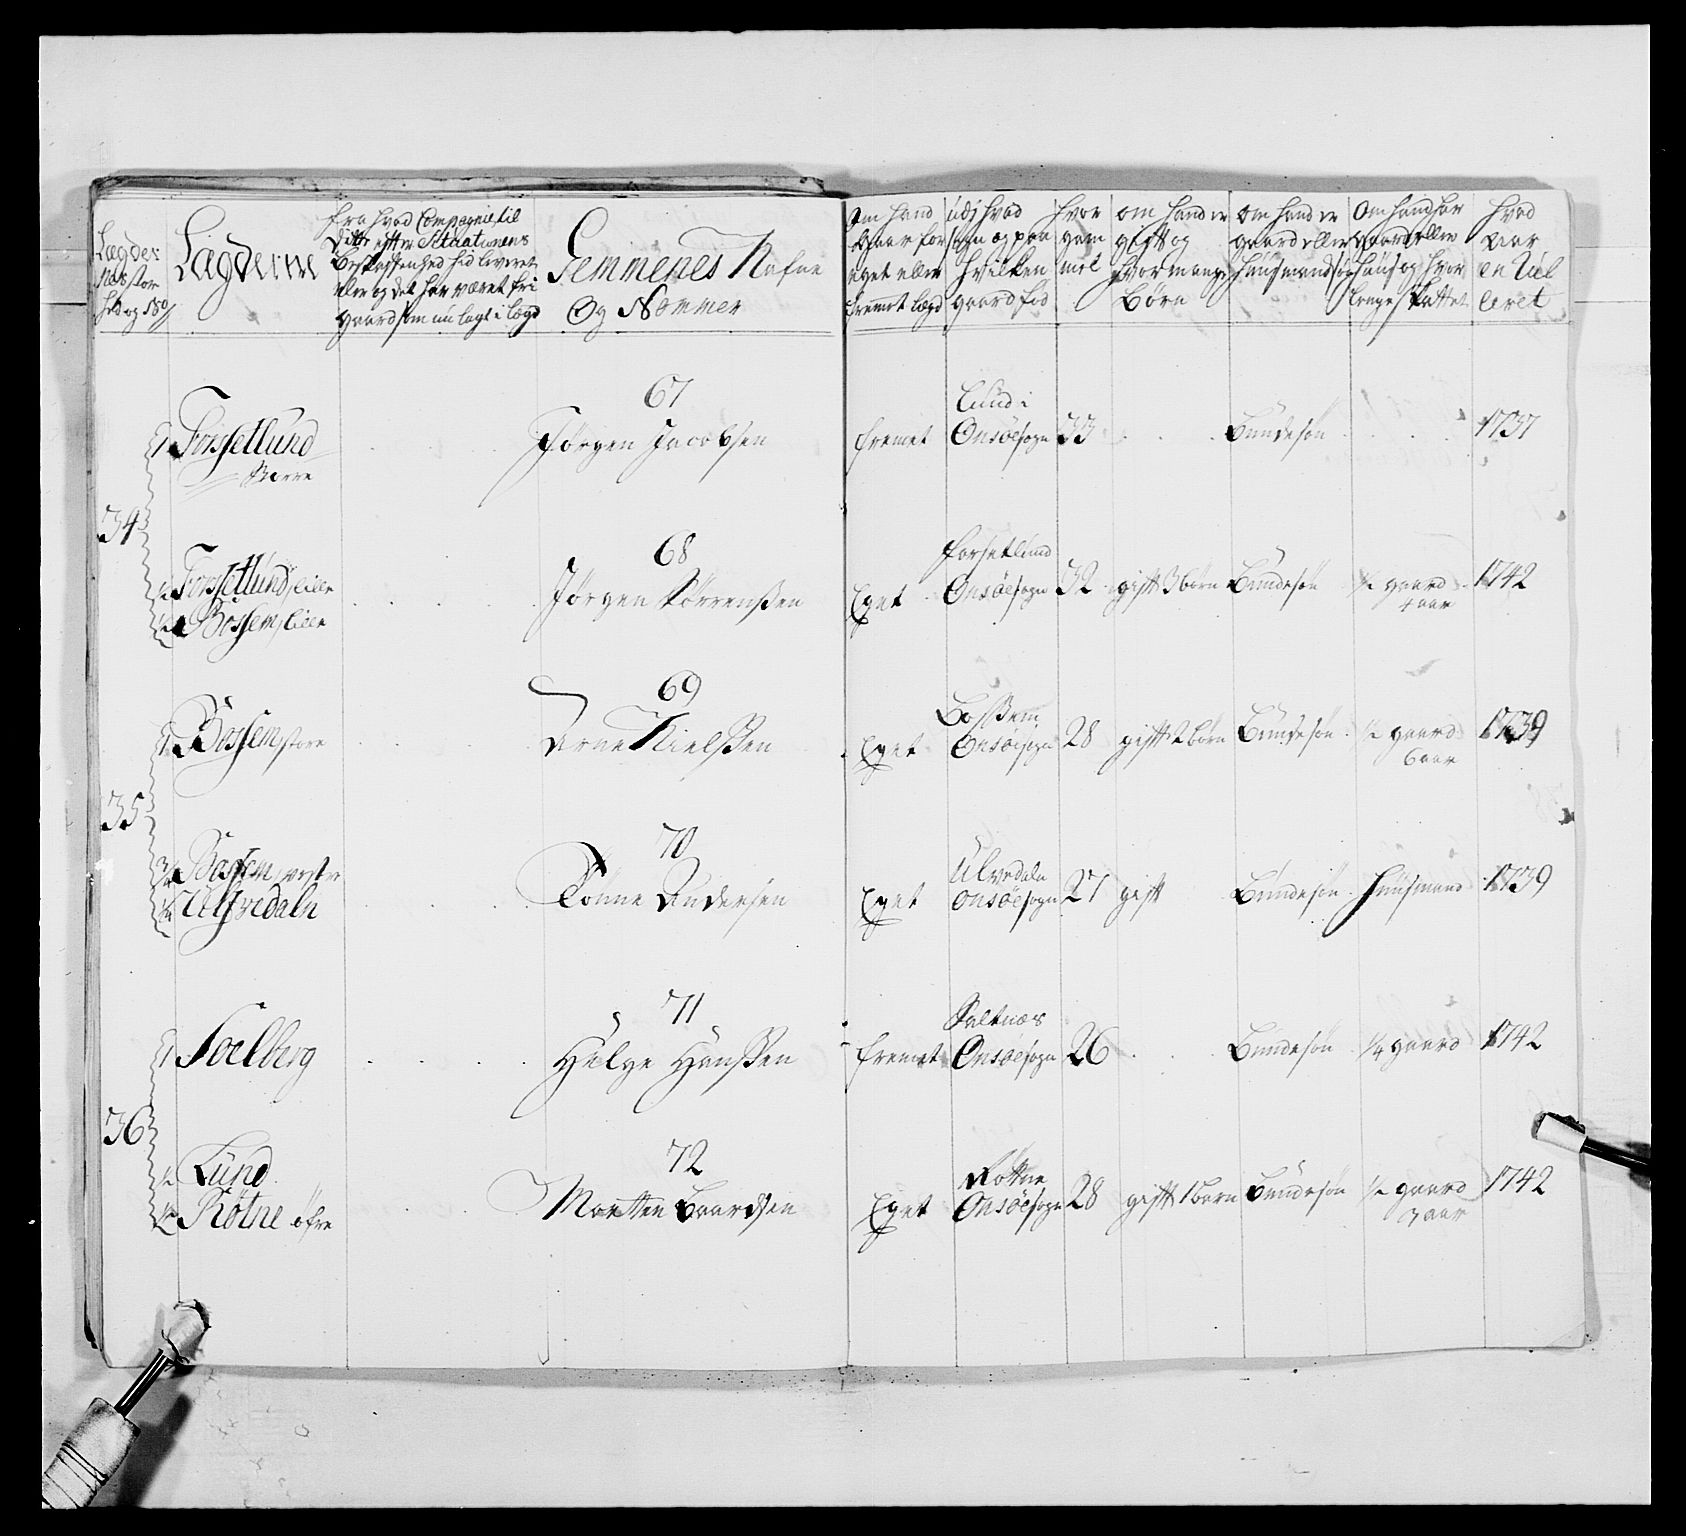 Lægder
Lægderne
fra hvad Compagnie, til
dette efter Situationens
Beskaffenhed hid leveret
eller og det har været fri
gaard som nu lagt i Lægd
Gemmenes Nafne
Og Nommer
Om hand
staar for
eget eller
fremt Lægd
udj hvad
sogn og paa
hvilken
gaard fød
Hvor
gam
mel
om hand er
gift og
hvor mange
Børn
om hand er
gaard eller
huusmands søn
Om hand har
gaard eller
huus og hvor
lenge skattet
Hvad
aar
en Uel
leret
34
1 Forssetlund
Større
67
Jørgen Jacobsen
fremet
Lund i
Onsøe sogn
33
Bundesøn
1737
½ Forssetlund, lille
½ Bossem, lille
68
Jørgen Sørrenssen
Eget
Forsetlund
Onsøe sogn
32
gift 3 børn
Bundesøn
½ gaard
4 aar
1742
35
1 Bossem store
69
Arne Nielssen
Eget
Bossem
Onsøe sogn
28
gift 2 børn
Bundesøn
½ gaard
6 aar
1739
Bassem, vestre
Ulfvedaln
70
Tønne Andersen
Eget
Ulvedaln
Onsøe sogn
27
gift
Bundesøn
huusmand
1739
36
1 Soelberg
71
Helge Hanssen
fremet
Saltnæs
Onsøe sogn
26
Bundesøn
¼ gaard
1742
½ Lund
½ Røtne øfre
72
Mortten Baardsen
Eget
Røttne
Onsøe sogn
28
gift 1 barn
Bundesøn
½ gaard
3 aar
1742